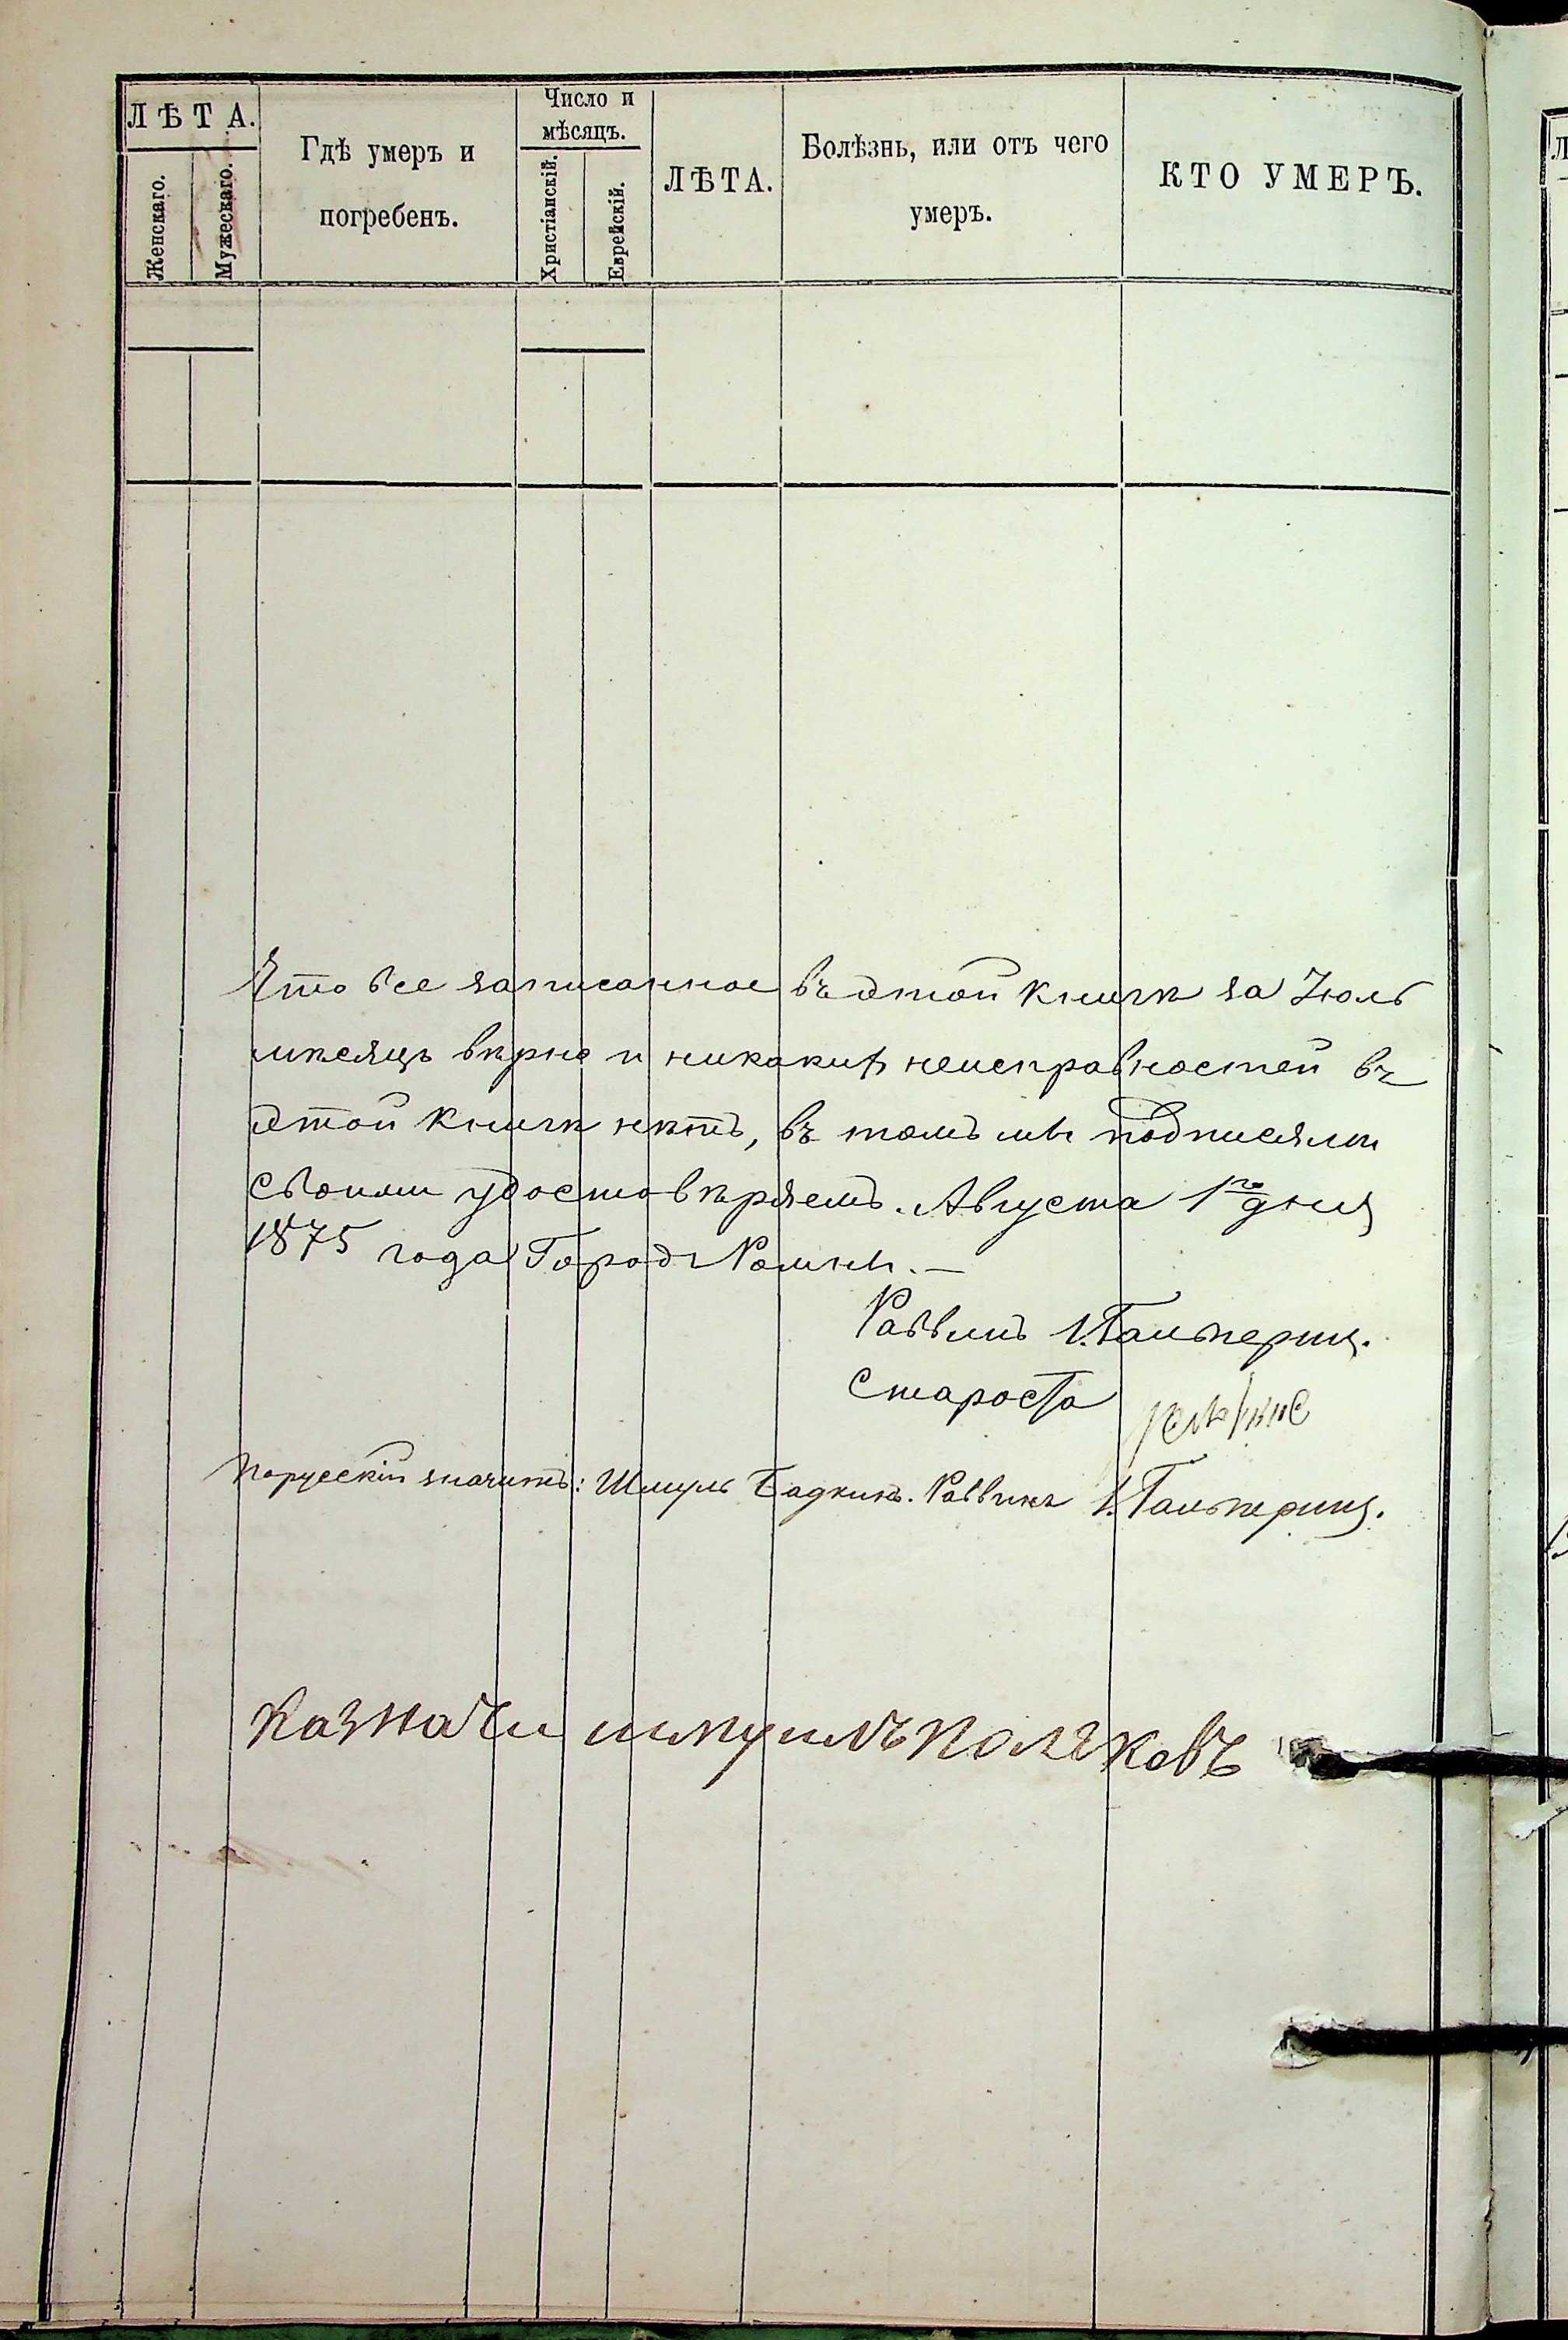 ЛѢТА.
Женскаго.
Мужескаго.
Гдѣ умеръ и
погребенъ.
Число и
мѣсяцъ.
Христіанскій.
Еврейскій.
ЛѢТА.
Болѣзнь, или отъ чего
умеръ.
КТО УМЕРЪ.
Что все записанное въ этой книгѣ за Іюль
мѣсяцъ вѣрно и никакихъ неисправностей въ
этой книгѣ нѣтъ, въ томъ мы подписями
своими удостовѣряемъ. Августа 1го дня
1875 года Городъ Ромны.—
Раввинъ І. Гальперинъ.
Староста
По русскій значитъ: Шмуль Бадкинъ. Раввинъ І. Гальперинъ.
Казначи шмуилъ Поляковъ